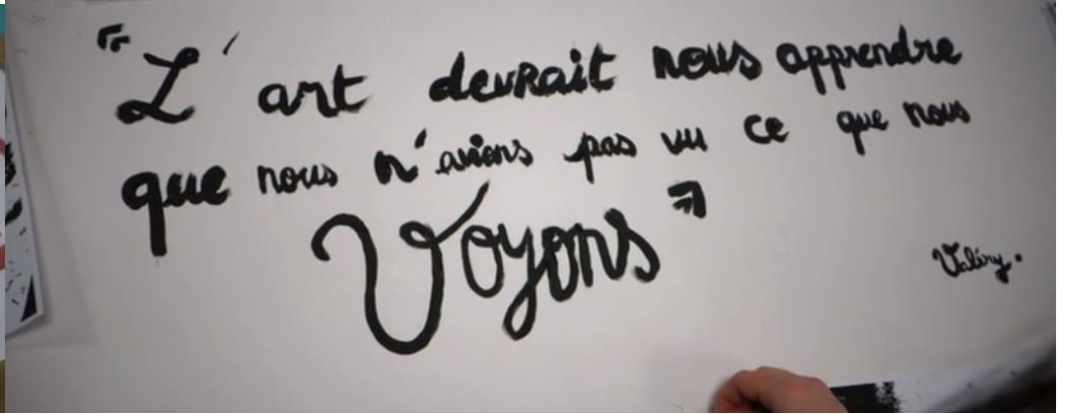 "L'art devrait nous apprendre
que nous n'avions pas vu ce que nous
Voyons"
Valéry.